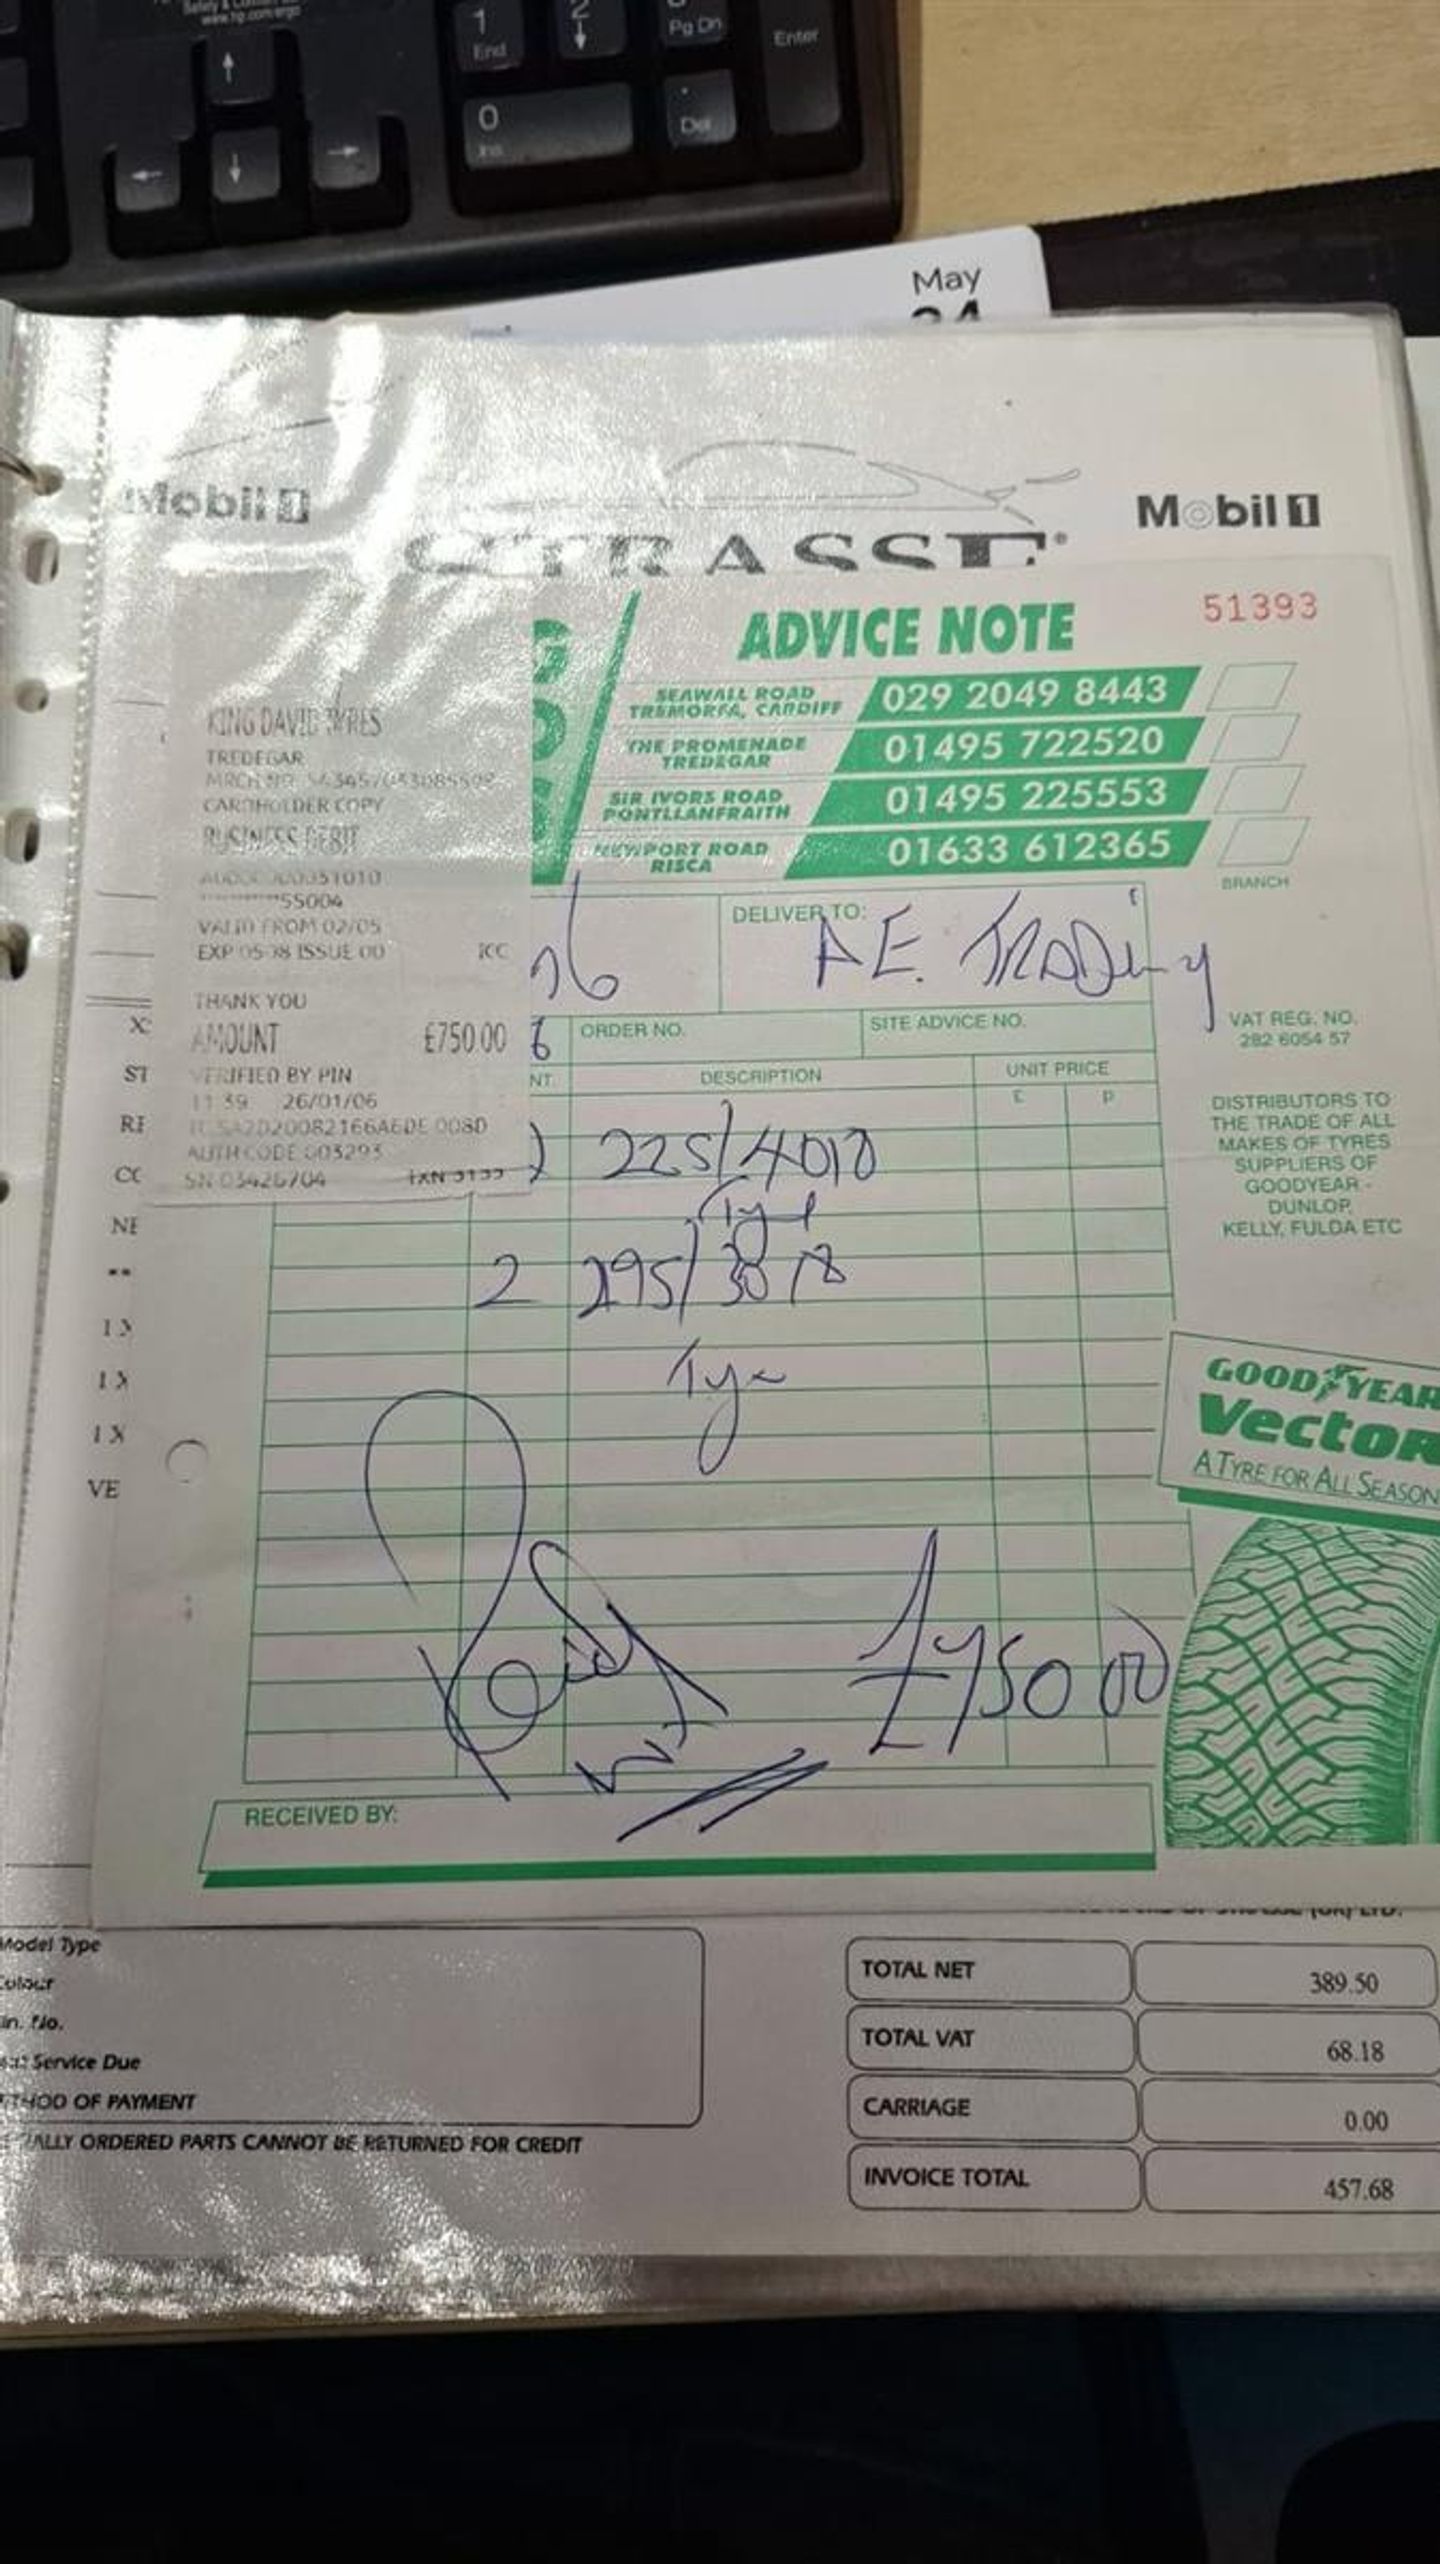 www.hp.com/ergo
1
End
2
Pg Dn
Enter
0
Ins
Del
May
Mobil 1
Mobil 1
STRASSE
ADVICE NOTE
51393
SEAWALL ROAD
TREMORFA, CARDIFF
029 2049 8443
THE PROMENADE
TREDEGAR
01495 722520
SIR IVORS ROAD
PONTLLANFRAITH
01495 225553
NEWPORT ROAD
RISCA
01633 612365
BRANCH
KING DAVID TYRES
TREDEGAR
CARDHOLDER COPY
BUSINESS DEBIT
55004
VALID FROM 02/05
ISSUE 00
ICC
THANK YOU
AMOUNT £750.00
VERIFIED BY PIN
11:39 26/01/06
AUTH CODE 003293
SN 03426704
DELIVER TO:
A E. TRADing
ORDER NO.
SITE ADVICE NO.
VAT REG. NO.
282 6054 57
NT
DESCRIPTION
UNIT PRICE
£
P
DISTRIBUTORS TO
THE TRADE OF ALL
MAKES OF TYRES
SUPPLIERS OF
GOODYEAR -
DUNLOP,
KELLY, FULDA ETC
225/4018
Tyre
2 295/30 18
Tyre
X
ST
RE
CC
NE
**
1 X
1 X
1 X
VE
GOODYEAR
Vector
A TYRE FOR ALL SEASON
Paid
£750 00
RECEIVED BY:
Model Type
Colour
in. No.
Service Due
THOD OF PAYMENT
IALLY ORDERED PARTS CANNOT BE RETURNED FOR CREDIT
TOTAL NET 389.50
TOTAL VAT 68.18
CARRIAGE 0.00
INVOICE TOTAL 457.68